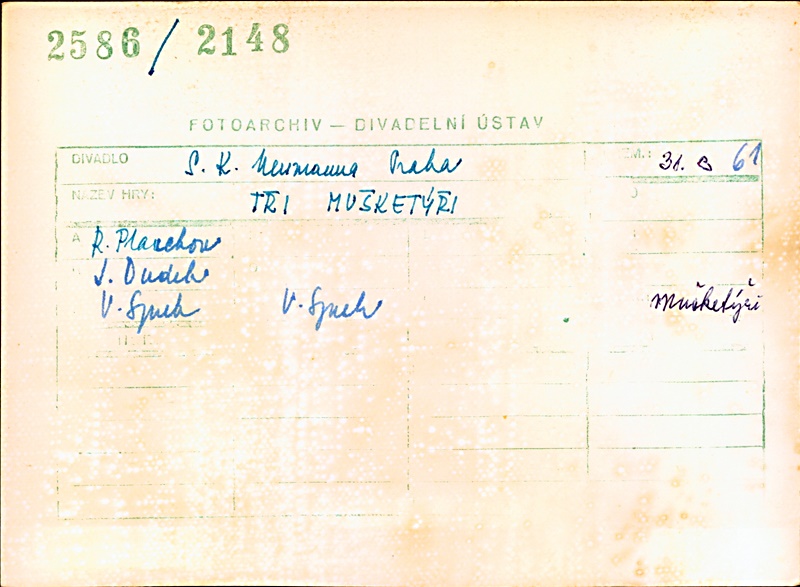 2586 / 2148
FOTOARCHIV — DIVADELNÍ ÚSTAV
DIVADLO S. K. Neumanna Praha 31. 3 61
NÁZEV HRY: TŘI MUŠKETÝŘI
R. Planchon
J. Dudek
V. Špach V. Špach mušketýři